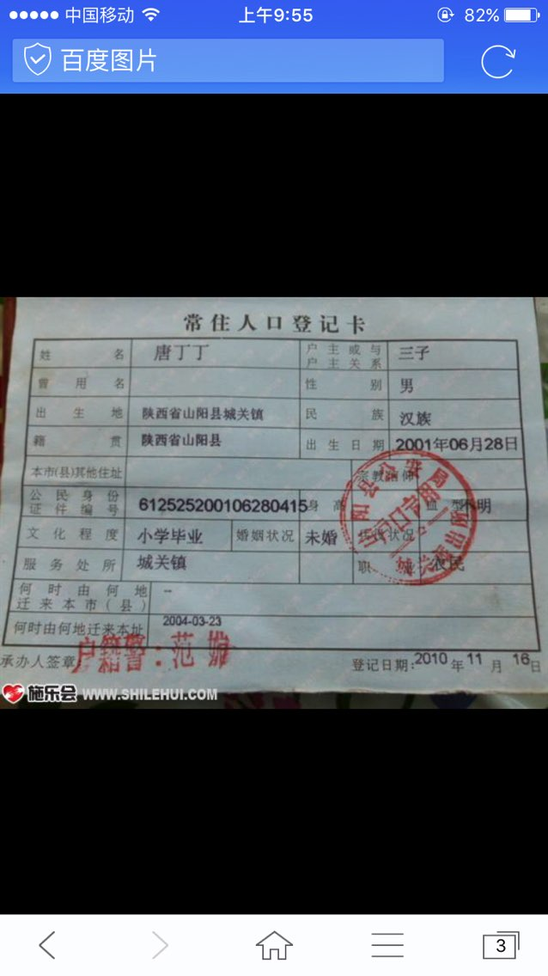 中国移动 上午9:55 82%
百度图片
常住人口登记卡
姓名 唐丁丁 户主或与户主关系 三子
曾用名 性别 男
出生地 陕西省山阳县城关镇 民族 汉族
籍贯 陕西省山阳县 出生日期 2001年06月28日
本市(县)其他住址 宗教信仰
公民身份证件编号 612525200106280415 身高 血型 不明
文化程度 小学毕业 婚姻状况 未婚
服务处所 城关镇 职 农民
何时由何地迁来本市(县) --
何时由何地迁来本址 2004-03-23
承办人签章: 户籍警:范 登记日期:2010年11月16日
施乐会 WWW.SHILEHUI.COM
3